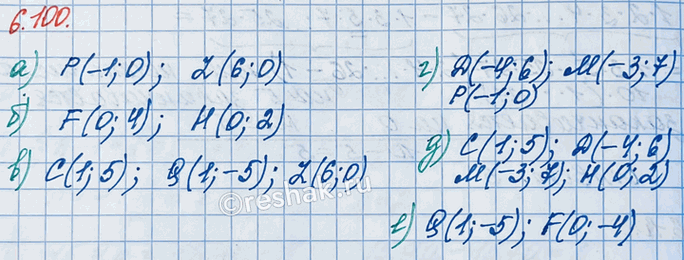 6.100.
а) P(-1; 0); L(6; 0)
б) F(0; 4); H(0; 2)
в) C(1; 5); Q(1; -5); L(6; 0)
г) D(-4; 6); M(-3; 7)
P(-1; 0)
д) C(1; 5); D(-4; 6)
M(-3; 7); H(0; 2)
е) Q(1; -5); F(0; -4)
©reshak.ru